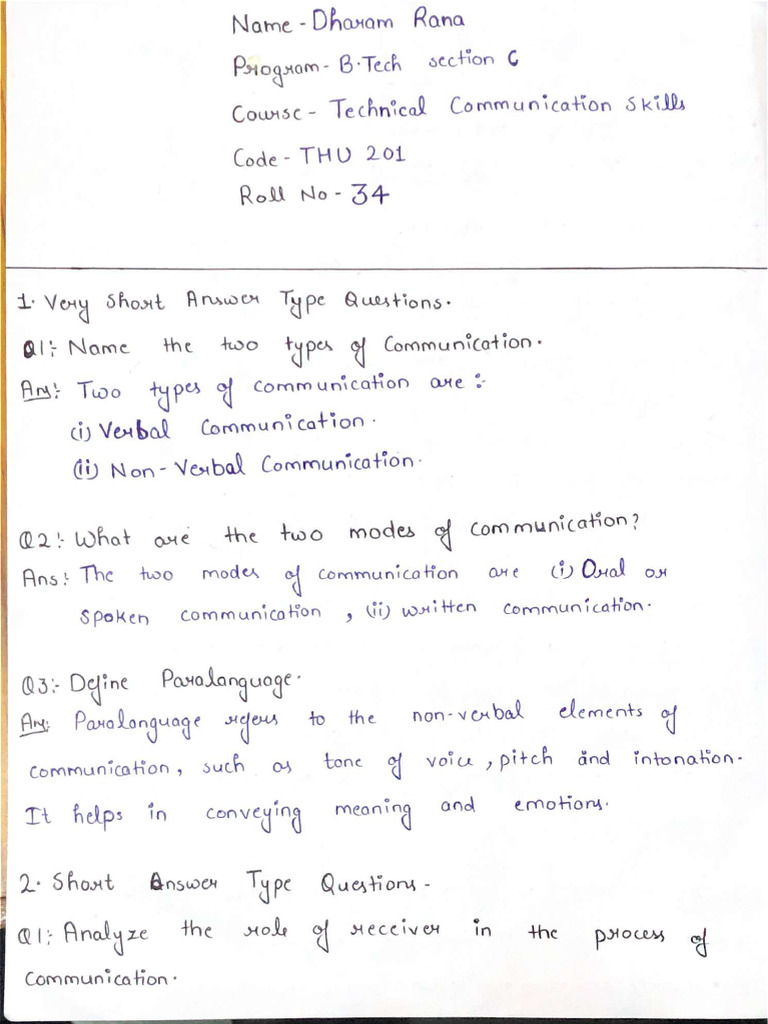 Name - Dharam Rana
Program - B.Tech section C
Course - Technical Communication Skills
Code - THU 201
Roll No - 34
1. Very Short Answer Type Questions.
Q1:- Name the two types of Communication.
Ans:- Two types of communication are :-
(i) Verbal Communication.
(ii) Non-Verbal Communication.
Q2:- What are the two modes of communication?
Ans:- The two modes of communication are (i) Oral or
spoken communication, (ii) written communication.
Q3:- Define Paralanguage.
Ans: Paralanguage refers to the non-verbal elements of
communication, such as tone of voice, pitch and intonation.
It helps in conveying meaning and emotions.
2. Short Answer Type Questions -
Q1:- Analyze the role of receiver in the process of
Communication.